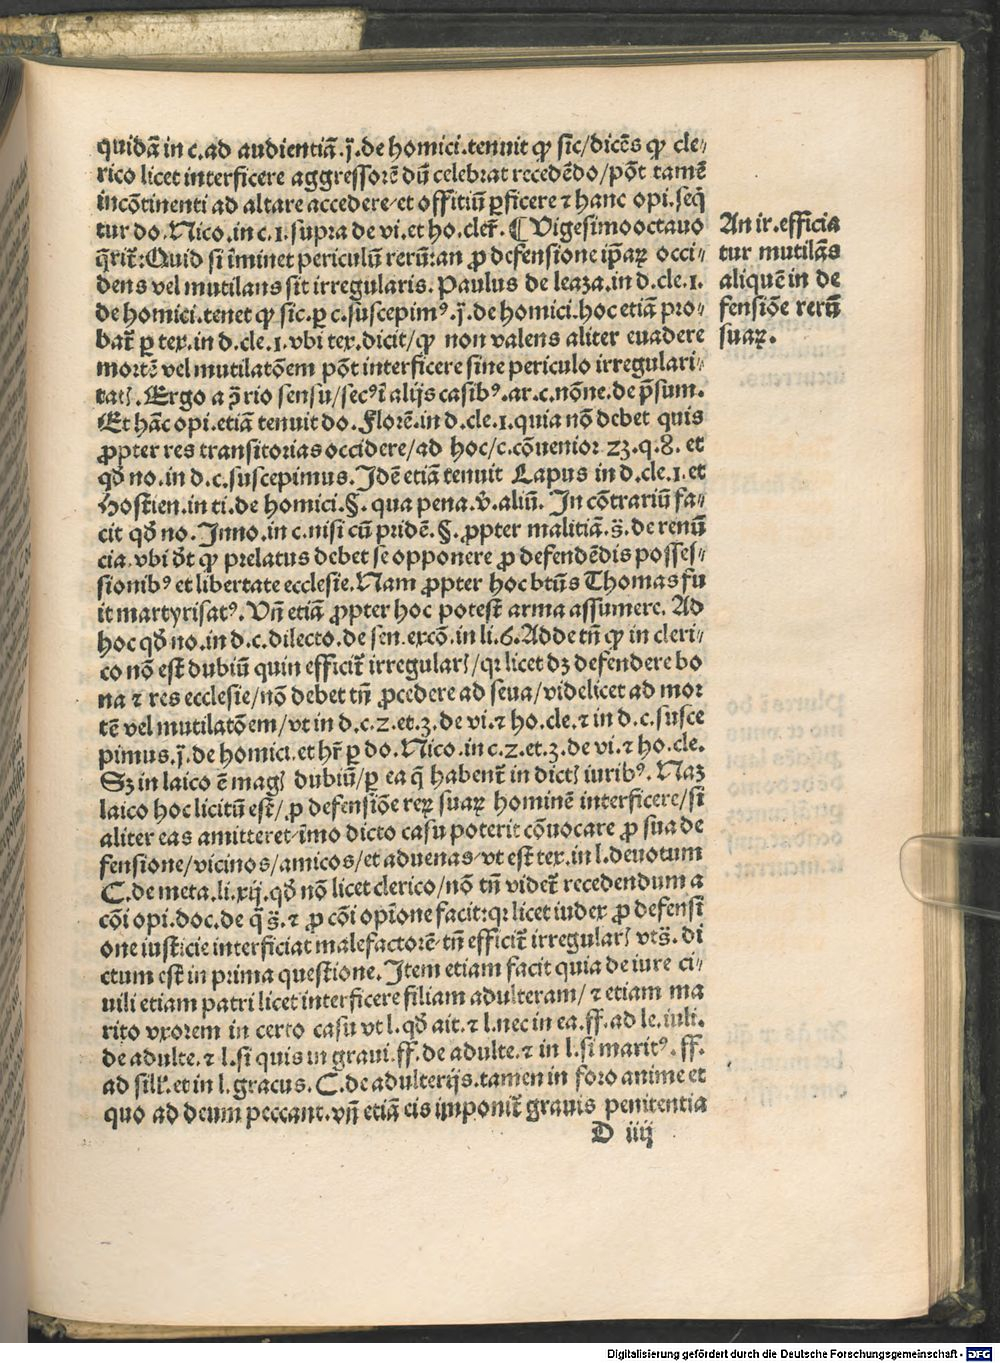 quidã in c.ad audientiã.j̃.de homici.tenuit ꝙ sic/dicẽs ꝙ cle⸗
rico licet interficere aggressorẽ dũ celebrat recedẽdo/põt tamẽ
incõtinenti ad altare accedere/et offitiũ ꝑficere ⁊ hanc opi.seq̃
tur do.Nico.in c.1.supra de vi.et ho.cler̃. ¶ Vigesimooctauo
q̃rit̃:Quid si ĩminet periculũ rerũ:an ꝓ defensione ip̃aꝝ occi⸗
dens vel mutilans sit irregularis. Paulus de leaza.in d.cle.1.
de homici.tenet ꝙ sic.ꝑ c.suscepimꝰ.j̃.de homici.hoc etiã pro⸗
bat̃ ꝑ tex.in d.cle.1.vbi tex.dicit/ꝙ non valens aliter euadere
mortẽ vel mutilatõem põt interficere sine periculo irregulari⸗
tatꝭ.Ergo a ꝯ̃rio sensu/secꝰ ĩ alijs casibꝰ.ar.c.nõne.de p̃sum.
Et hãc opi.etiã tenuit do.Florẽ.in d.cle.1.quia nõ debet quis
ꝓpter res transitorias occidere/ad hoc/c.cõuenior 23.q.8. et
qđ no.in d.c.suscepimus.Idẽ etiã tenuit Lapus in d.cle.1.et
Hostien.in ti.de homici.§. qua pena.v̓.aliũ. In cõtrariũ fa⸗
cit qđ no.Inno.in c.nisi cũ pridẽ.§.ꝓpter malitiã.s̃.de renũ
cia.vbi đt ꝙ prelatus debet se opponere ꝓ defendẽdis posses⸗
sionibꝰ et libertate ecclesie.Nam ꝓpter hoc btũs Thomas fu
it martyrisatꝰ. Vñ etiã ꝓpter hoc potest arma assumere. Ad
hoc qđ no.in d.c.dilecto.de sen.excõ.in li.6.Adde tñ ꝙ in cleri⸗
co nõ est dubiũ quin efficit̃ irregularꝭ/qꝛ licet dꝫ defendere bo
na ⁊ res ecclesie/nõ debet tñ ꝓcedere ad seua/videlicet ad mor
tẽ vel mutilatõem/vt in d.c.2.et.3.de vi.⁊ ho.cle.⁊ in d.c.susce
pimus.j̃.de homici.et hr̃ ꝑ do.Nico.in c.2.et.3.de vi.⁊ ho.cle.
Sꝫ in laico ẽ magꝭ dubiũ/ꝑ ea q̃ habent̃ in dictꝭ iuribꝰ. Naꝫ
laico hoc licitũ est/ꝓ defensiõe reꝝ suaꝝ hominẽ interficere/si
aliter eas amitteret/ĩmo dicto casu poterit cõuocare ꝓ sua de
fensione/vicinos/amicos/et aduenas/vt est tex.in l.deuotum
C.de meta.li.xij.qđ nõ licet clerico/nõ tñ videt̃ recedendum a
cõi opi.doc.de q̃ s̃.⁊ ꝓ cõi opĩone facit:qꝛ licet iudex ꝓ defensi
one iusticie interficiat malefactorẽ/tñ efficit̃ irregularꝭ vts̃. di
ctum est in prima questione.Item etiam facit quia de iure ci⸗
uili etiam patri licet interficere filiam adulteram/ ⁊ etiam ma
rito vxorem in certo casu vt l.qđ ait.⁊ l.nec in ea.ff.ad le.iuli.
de adulte.⁊ l.si quis in graui.ff.de adulte.⁊ in l.si maritꝰ.ff.
ad sill̃.et in l.gracus.C.de adulterijs.tamen in foro anime et
quo ad deum peccant.vñ etiã eis imponit̃ grauis penitentia
D iiij
An ir.efficia
tur mutilãs
aliquẽ in de
fensiõe rerũ
suaꝝ.
Digitalisierung gefördert durch die Deutsche Forschungsgemeinschaft - DFG